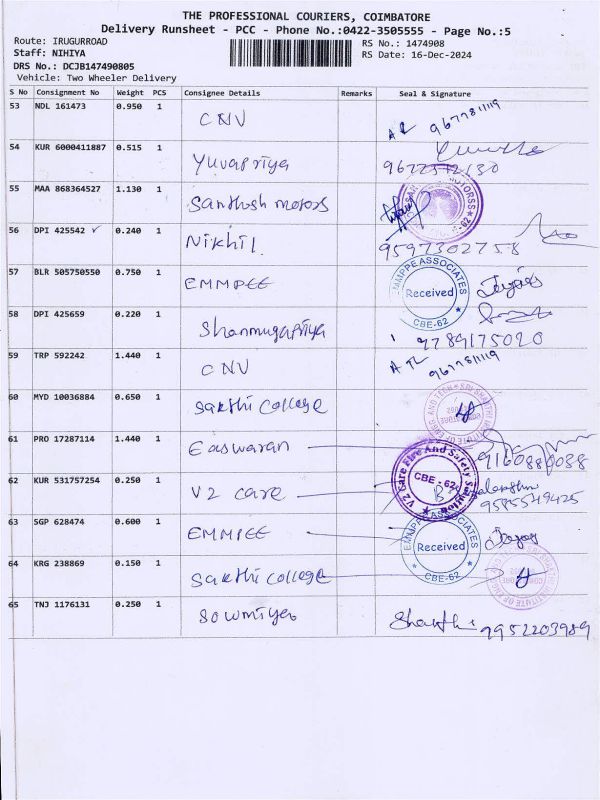 THE PROFESSIONAL COURIERS, COIMBATORE
Delivery Runsheet - PCC - Phone No.:0422-3505555 - Page No.:5
Route: IRUGURROAD
RS No.: 1474908
Staff: NIHIYA
RS Date: 16-Dec-2024
DRS No.: DCJB147490805
Vehicle: Two Wheeler Delivery
S No Consignment No Weight PCS Consignee Details Remarks Seal & Signature
53 NDL 161473 0.950 1 CNV 9677811119
54 KUR 6000411887 0.515 1 Yuvapriya
55 MAA 868364527 1.130 1 Santhosh motors
56 DPI 425542 ✓ 0.240 1 Nikhil 9597302758
57 BLR 505750550 0.750 1 EMMPEE EMMPPE ASSOCIATES Received CBE-62
58 DPI 425659 0.220 1 Shanmugapriya 9789175020
59 TRP 592242 1.440 1 CNV 9677811119
60 MYD 10036884 0.650 1 Sakthi College
61 PRO 17287114 1.440 1 Easwaran 9160880088
62 KUR 531757254 0.250 1 V2 care V2 Care Fire And Safety Solution CBE - 62 9585549425
63 SGP 628474 0.600 1 EMMPEE EMMPPE ASSOCIATES Received CBE-62
64 KRG 238869 0.150 1 Sakthi College
65 TNJ 1176131 0.250 1 Sowmiya Shakthi 9952203989